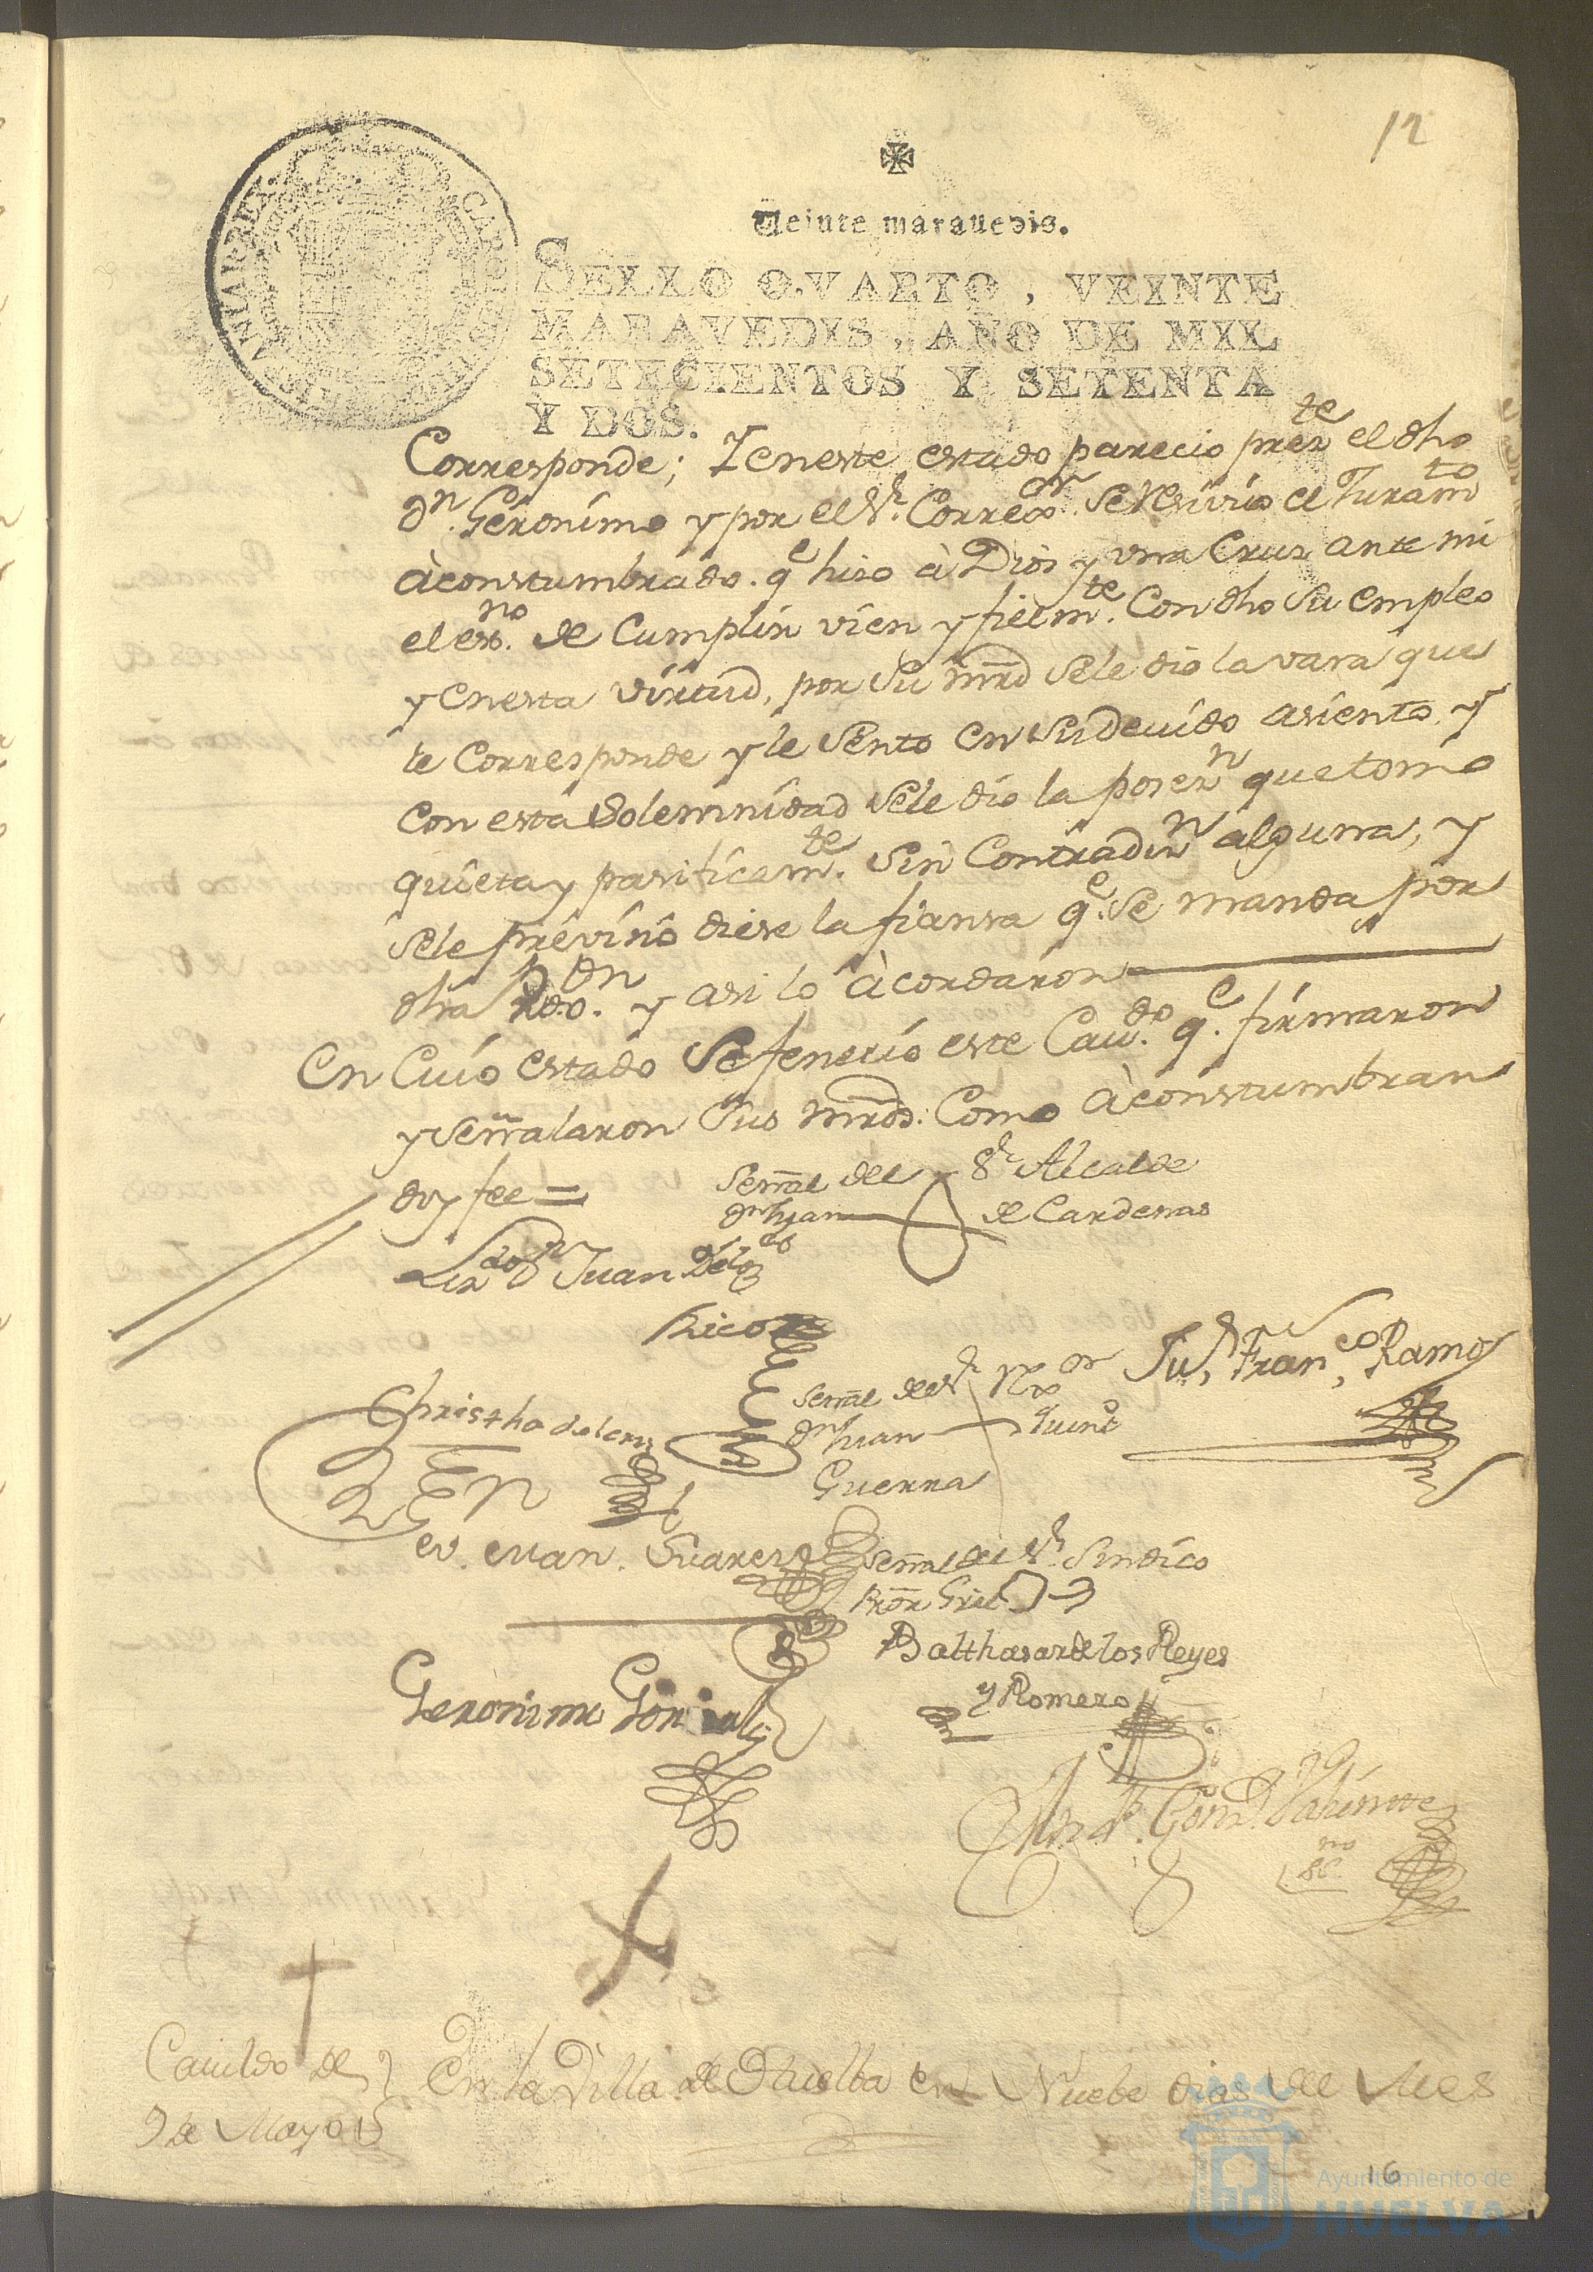 12
Veinte marauedis.
SELLO QVARTO, VEINTE
MARAVEDIS, AÑO DE MIL
SETECIENTOS Y SETENTA
Y DOS.
Corresponde; Y en este estado parecio preste el dho
Dn. Gerónimo y por el Sr. Corregor se resivio el Juramto
àcostumbrado. qe hiso à Dios y una Cruz ante mi
el esno. de Cumplir vien y fielmte. Con dho Su empleo
y en esta virtud, por Su mrd se le dio la vara que
le Corresponde y le Sento en Su devido asiento, y
con esta Solemnidad se le dio la posesn que tomó
quieta y pasificamte. Sin Contradisn alguna, y
se le previno diese la fianza qe. se manda por
dha Rl. Provon. y asi lo àcordaron
En Cuio estado Se feneció este Cavdo. qe. firmaron
y señalaron Sus mrds. Como àcostumbran
doy fee =
Señal del Sr. Alcalde
Dn Juan de Cardenas
Lizdo Dn Juan
Rico
Señal del Sr. Rexor
Dn Juan Quinto
Guerra
Ju, Franco, Ramos
Christhoval
Man. Suares
Señal del Sr. Sindico
Pror Gral
Balthasar de los Reyes
y Romero
Geronimo Gonzalez
Gonz
sno
Cauildo de
9 de Mayo
En la Villa de Huelba en Nuebe dias del Mes
16
Ayuntamiento de
HUELVA